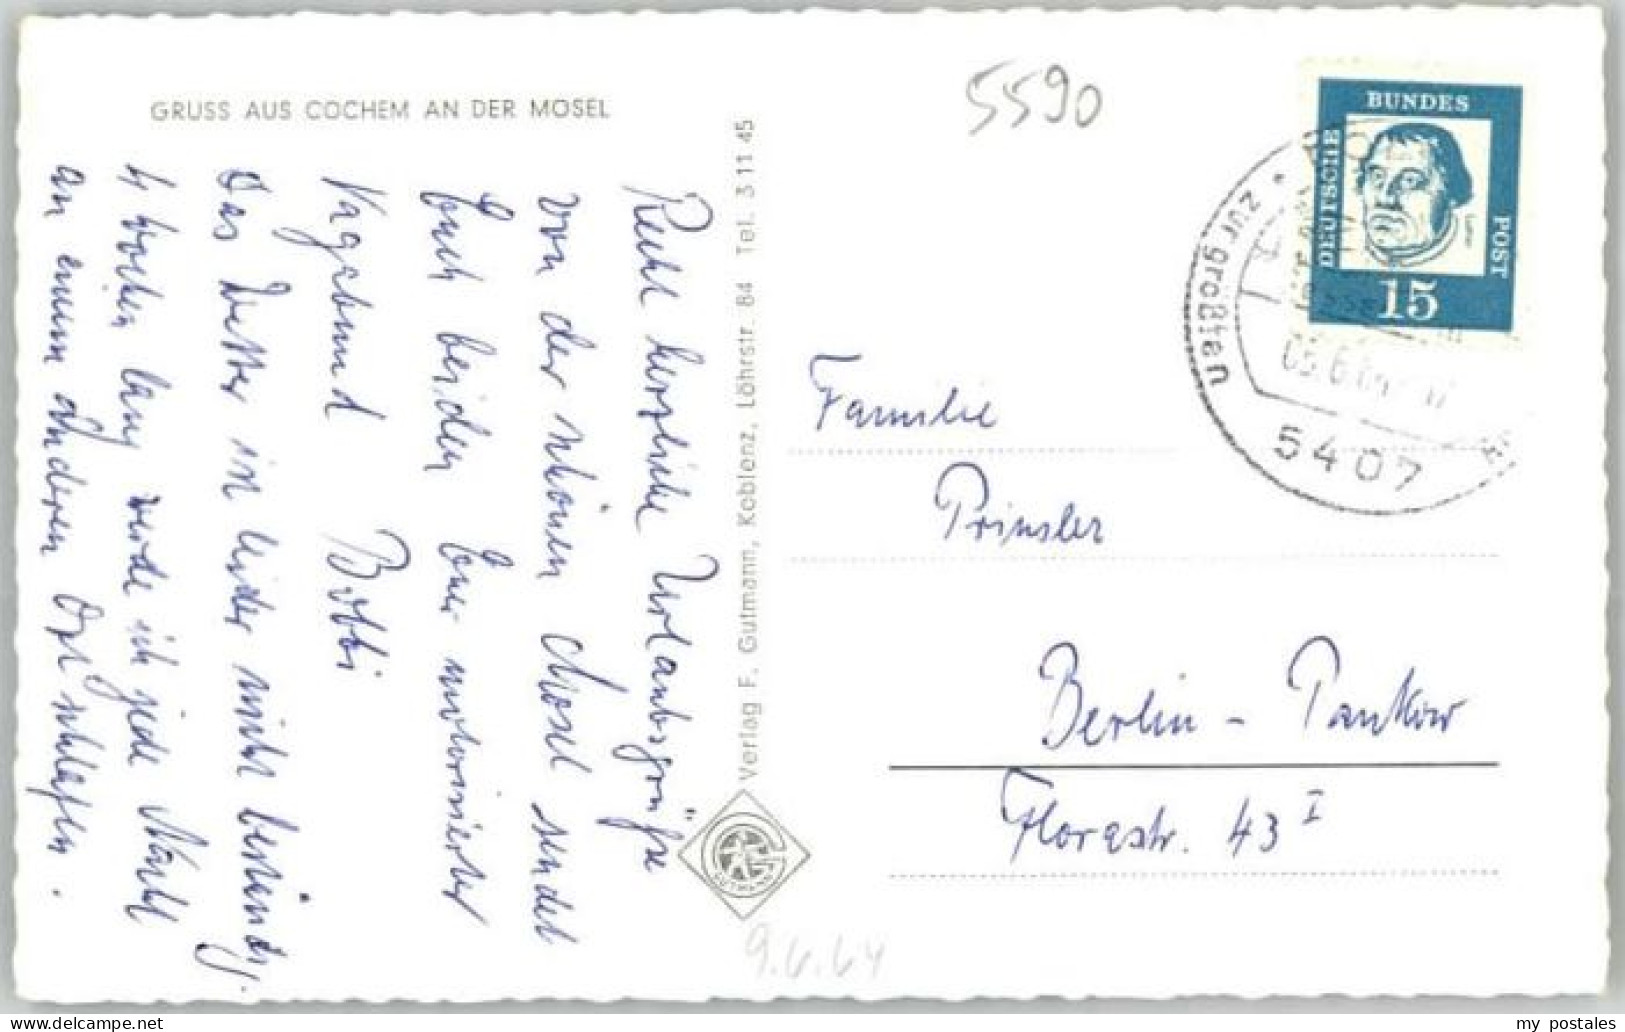 GRUSS AUS COCHEM AN DER MOSEL
Recht herzliche Urlaubsgrüße
von der schönen Mosel sendet
Euch beiden Euer motorisierter
Vagabund Bobbi
Das Wetter ist leider nicht beständig.
4 Wochen lang werde ich jede Nacht
an einem anderen Ort schlafen.
Verlag F. Gutmann, Koblenz, Löhrstr. 84 Tel. 3 11 45
GUTMANN
9.6.64
5590
DEUTSCHE
BUNDES
POST
Luther
15
zur größten
5407
Familie
Prinsler
Berlin - Pankow
Florastr. 43 I
my postales